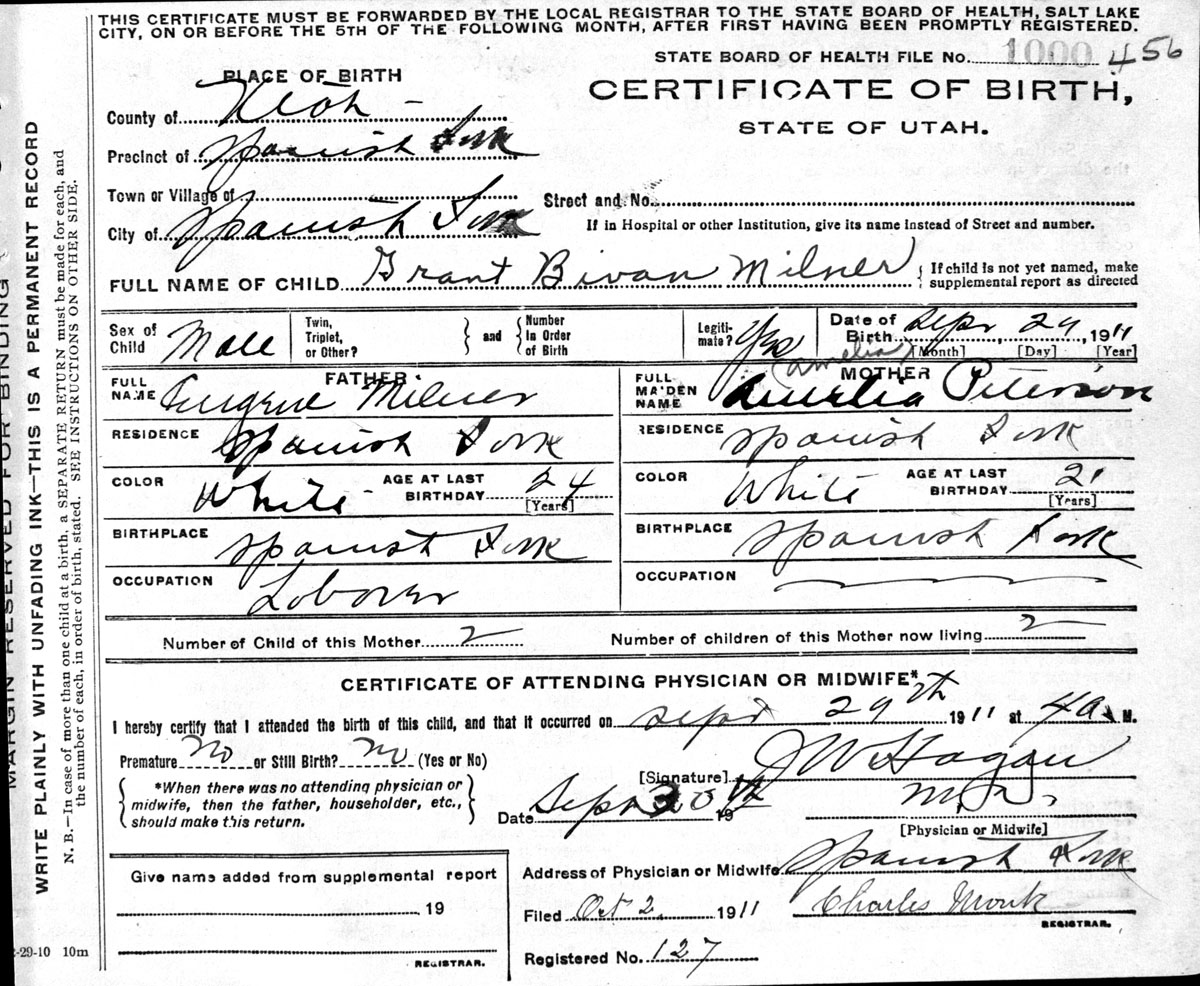 THIS CERTIFICATE MUST BE FORWARDED BY THE LOCAL REGISTRAR TO THE STATE BOARD OF HEALTH, SALT LAKE
CITY, ON OR BEFORE THE 5TH OF THE FOLLOWING MONTH, AFTER FIRST HAVING BEEN PROMPTLY REGISTERED.
STATE BOARD OF HEALTH FILE No. 1000 456
PLACE OF BIRTH
CERTIFICATE OF BIRTH,
STATE OF UTAH.
County of Utah
Precinct of Spanish Fork
Town or Village of
Street and No.
City of Spanish Fork
If in Hospital or other Institution, give its name instead of Street and number.
FULL NAME OF CHILD Grant Bivan Milner
If child is not yet named, make
supplemental report as directed
Sex of Child Male
Twin, Triplet, or Other?
and
Number In Order of Birth
Legiti-mate? Yes
Date of Birth Sept 29, 1911
[Month] [Day] [Year]
FATHER
FULL NAME Eugene Milner
RESIDENCE Spanish Fork
COLOR White
AGE AT LAST BIRTHDAY 24
[Years]
BIRTHPLACE Spanish Fork
OCCUPATION Laborer
(Amelia)
MOTHER
FULL MAIDEN NAME Amelia Peterson
RESIDENCE Spanish Fork
COLOR White
AGE AT LAST BIRTHDAY 21
[Years]
BIRTHPLACE Spanish Fork
OCCUPATION
Number of Child of this Mother 2
Number of children of this Mother now living 2
CERTIFICATE OF ATTENDING PHYSICIAN OR MIDWIFE*
I hereby certify that I attended the birth of this child, and that it occurred on Sept 29th 1911 at 4 A M.
Premature No or Still Birth? No (Yes or No)
[Signature] J W Hagan
*When there was no attending physician or
midwife, then the father, householder, etc.,
should make this return.
Date Sept 30th 19
M.D.
[Physician or Midwife]
Give name added from supplemental report
19
REGISTRAR.
Address of Physician or Midwife Spanish Fork
Filed Oct 2 1911
Charles Monk
REGISTRAR.
Registered No. 127
MARGIN RESERVED FOR BINDING
WRITE PLAINLY WITH UNFADING INK—THIS IS A PERMANENT RECORD
N. B.—In case of more than one child at a birth, a SEPARATE RETURN must be made for each, and
the number of each, in order of birth, stated. SEE INSTRUCTIONS ON OTHER SIDE.
-29-10 10m